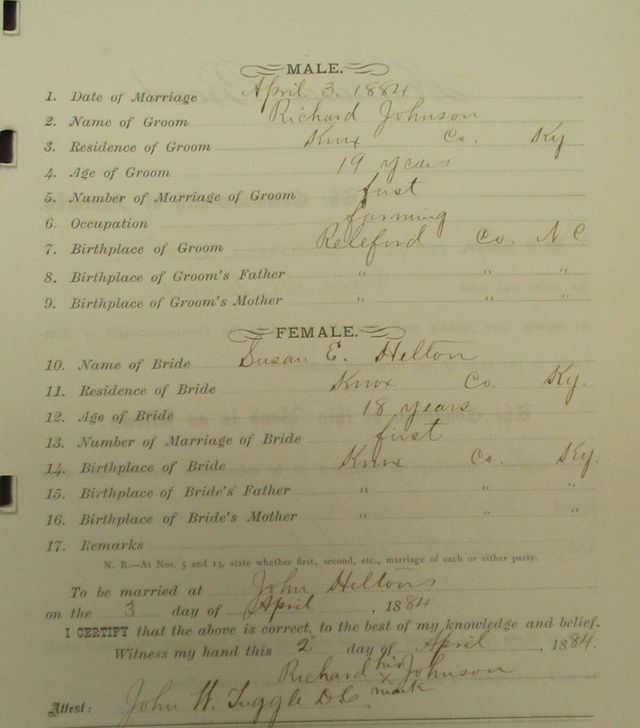 MALE.
1. Date of Marriage April 3, 1884
2. Name of Groom Richard Johnson
3. Residence of Groom Knox Co. Ky
4. Age of Groom 19 years
5. Number of Marriage of Groom first
6. Occupation farming
7. Birthplace of Groom Releford Co. N C
8. Birthplace of Groom's Father " " "
9. Birthplace of Groom's Mother " " "
FEMALE.
10. Name of Bride Susan E. Helton
11. Residence of Bride Knox Co. Ky.
12. Age of Bride 18 years
13. Number of Marriage of Bride first
14. Birthplace of Bride Knox Co. Ky.
15. Birthplace of Bride's Father " " "
16. Birthplace of Bride's Mother " " "
17. Remarks
N. B.—At Nos. 5 and 13, state whether first, second, etc., marriage of each or either party.
To be married at John Heltons
on the 3 day of April, 1884
I CERTIFY that the above is correct, to the best of my knowledge and belief.
Witness my hand this 2 day of April, 1884.
Richard his x mark Johnson
Attest: John W. Tuggle D.C.